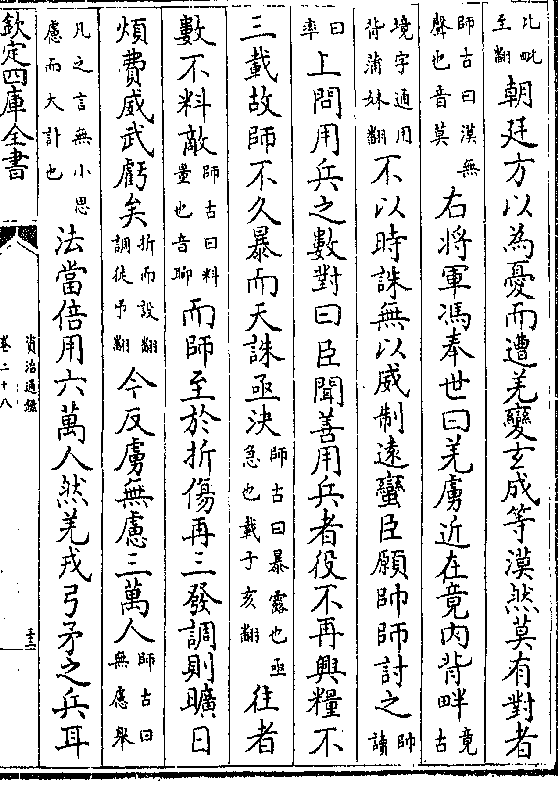 比毗至翻朝廷方以為憂而遭羌變玄成等漠然莫有對者
師古曰漠無聲也音莫右將軍馮奉世曰羌虜近在竟内背畔竟古
境字通用背蒲妹翻不以時誅無以威制遠蠻臣願帥師討之帥讀
曰率上問用兵之數對曰臣聞善用兵者役不再興糧不
三載故師不久暴而天誅亟決師古曰暴露也亟急也載子亥翻往者
數不料敵師古曰料量也音聊而師至於折傷再三發調則曠日
煩費威武虧矣折而設翻調徒弔翻今反虜無慮三萬人師古曰無慮舉
凡之言無小思慮而大計也法當倍用六萬人然羌戎弓矛之兵耳
欽定四庫全書
資治通鑑
卷二十八